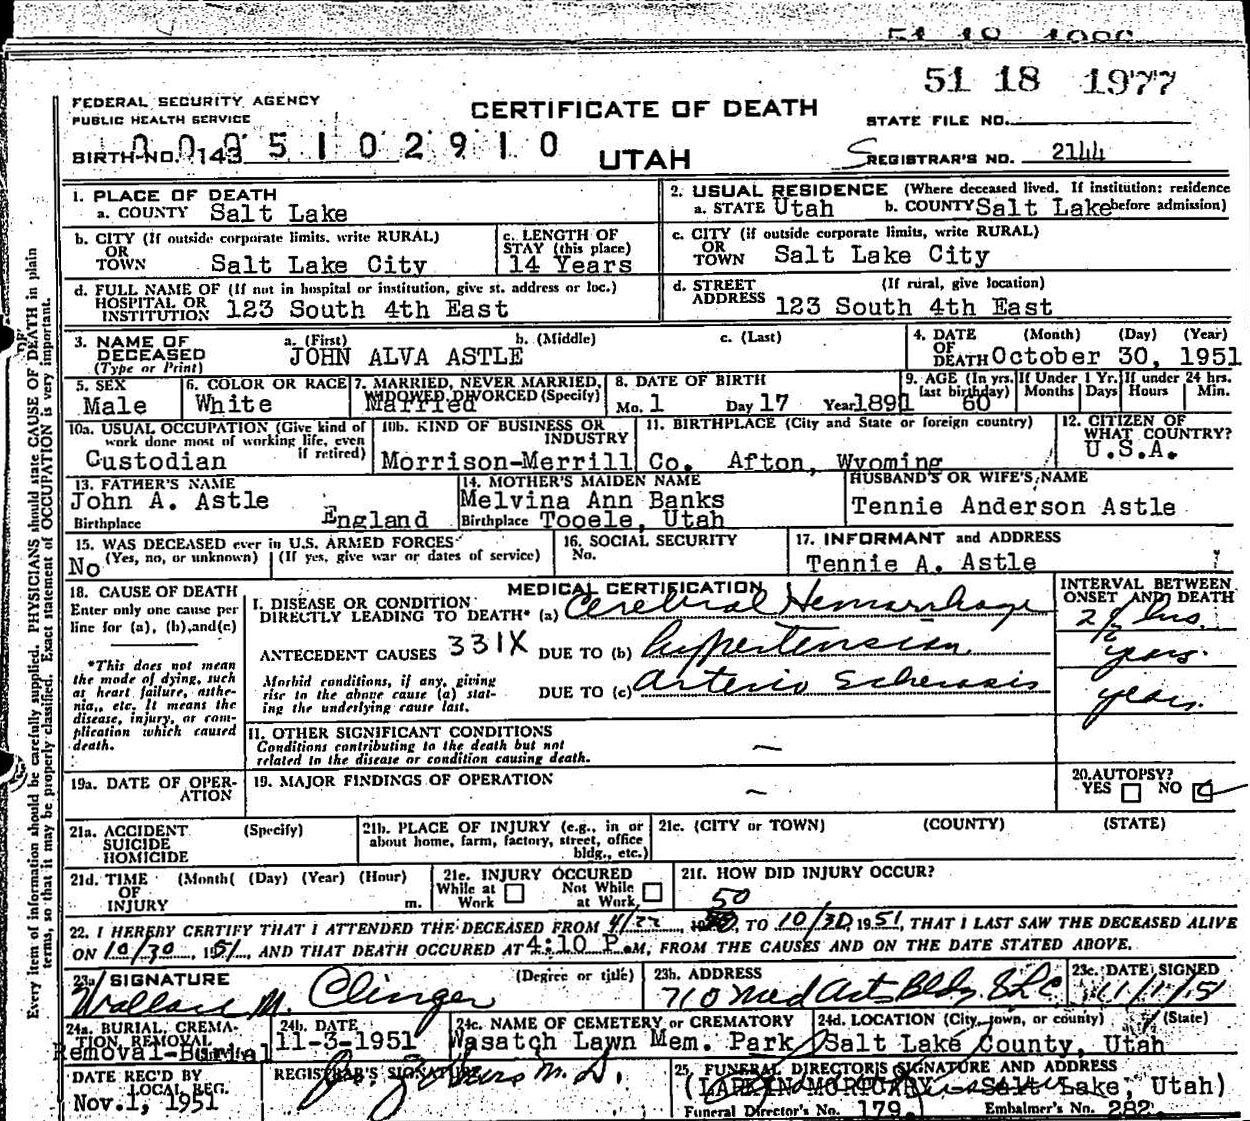 51 18 1977
FEDERAL SECURITY AGENCY
PUBLIC HEALTH SERVICE
CERTIFICATE OF DEATH
STATE FILE NO.
BIRTH NO. 143 5 1 0 2 9 1 0
UTAH
REGISTRAR'S NO. 2144
1. PLACE OF DEATH
a. COUNTY Salt Lake
2. USUAL RESIDENCE (Where deceased lived. If institution: residence
a. STATE Utah b. COUNTY Salt Lake before admission)
b. CITY (If outside corporate limits, write RURAL)
OR
TOWN Salt Lake City
c. LENGTH OF
STAY (this place)
14 Years
c. CITY (if outside corporate limits, write RURAL)
OR
TOWN Salt Lake City
d. FULL NAME OF (If not in hospital or institution, give st. address or loc.)
HOSPITAL OR
INSTITUTION 123 South 4th East
d. STREET (If rural, give location)
ADDRESS 123 South 4th East
3. NAME OF a. (First) b. (Middle) c. (Last)
DECEASED JOHN ALVA ASTLE
(Type or Print)
4. DATE (Month) (Day) (Year)
OF
DEATH October 30, 1951
5. SEX
Male
6. COLOR OR RACE
White
7. MARRIED, NEVER MARRIED,
WIDOWED, DIVORCED (Specify)
Married
8. DATE OF BIRTH
Mo. 1 Day 17 Year 1891
9. AGE (In yrs. last birthday) 60
If Under 1 Yr. Months Days
If under 24 hrs. Hours Min.
10a. USUAL OCCUPATION (Give kind of
work done most of working life, even
if retired)
Custodian
10b. KIND OF BUSINESS OR
INDUSTRY
Morrison-Merrill Co.
11. BIRTHPLACE (City and State or foreign country)
Afton, Wyoming
12. CITIZEN OF
WHAT COUNTRY?
U.S.A.
13. FATHER'S NAME
John A. Astle
Birthplace England
14. MOTHER'S MAIDEN NAME
Melvina Ann Banks
Birthplace Tooele, Utah
HUSBAND'S OR WIFE'S NAME
Tennie Anderson Astle
15. WAS DECEASED ever in U.S. ARMED FORCES
(Yes, no, or unknown) (If yes, give war or dates of service)
No
16. SOCIAL SECURITY
No.
17. INFORMANT and ADDRESS
Tennie A. Astle
18. CAUSE OF DEATH
Enter only one cause per
line for (a), (b), and (c)
*This does not mean
the mode of dying, such
as heart failure, asthe-
nia,, etc. It means the
disease, injury, or com-
plication which caused
death.
MEDICAL CERTIFICATION
I. DISEASE OR CONDITION
DIRECTLY LEADING TO DEATH* (a) Cerebral Hemorrhage
ANTECEDENT CAUSES 331X DUE TO (b) hypertension
Morbid conditions, if any, giving
rise to the above cause (a) stat-
ing the underlying cause last.
DUE TO (c) Arterio Sclerosis
INTERVAL BETWEEN
ONSET AND DEATH
2 1/2 hrs.
years.
years.
II. OTHER SIGNIFICANT CONDITIONS
Conditions contributing to the death but not
related to the disease or condition causing death.
—
19a. DATE OF OPER-
ATION
19. MAJOR FINDINGS OF OPERATION
—
20. AUTOPSY?
YES NO
21a. ACCIDENT (Specify)
SUICIDE
HOMICIDE
21b. PLACE OF INJURY (e.g., in or
about home, farm, factory, street, office
bldg., etc.)
21c. (CITY or TOWN) (COUNTY) (STATE)
21d. TIME (Month( (Day) (Year) (Hour)
OF
INJURY m.
21e. INJURY OCCURED
While at Work Not While at Work
21f. HOW DID INJURY OCCUR?
22. I HEREBY CERTIFY THAT I ATTENDED THE DECEASED FROM 4/22, 50, TO 10/30, 1951, THAT I LAST SAW THE DECEASED ALIVE
ON 10/30, 1951, AND THAT DEATH OCCURED AT 4:10 P.M, FROM THE CAUSES AND ON THE DATE STATED ABOVE.
23a SIGNATURE (Degree or title)
Wallace M. Clinger
23b. ADDRESS
710 Med Arts Bldg SLC
23c. DATE SIGNED
11/1/51
24a. BURIAL, CREMA-
TION, REMOVAL
Removal-Burial
24b. DATE
11-3-1951
24c. NAME OF CEMETERY or CREMATORY
Wasatch Lawn Mem. Park
24d. LOCATION (City, town, or county) (State)
Salt Lake County, Utah
DATE REC'D BY
LOCAL REG.
Nov. 1, 1951
REGISTRAR'S SIGNATURE
M. D.
25. FUNERAL DIRECTOR'S SIGNATURE AND ADDRESS
(LARKIN MORTUARY Salt Lake, Utah)
Funeral Director's No. 179. Embalmer's No. 282
Every item of information should be carefully supplied. PHYSICIANS should state CAUSE OF DEATH in plain
terms, so that it may be properly classified. Exact statement of OCCUPATION is very important.